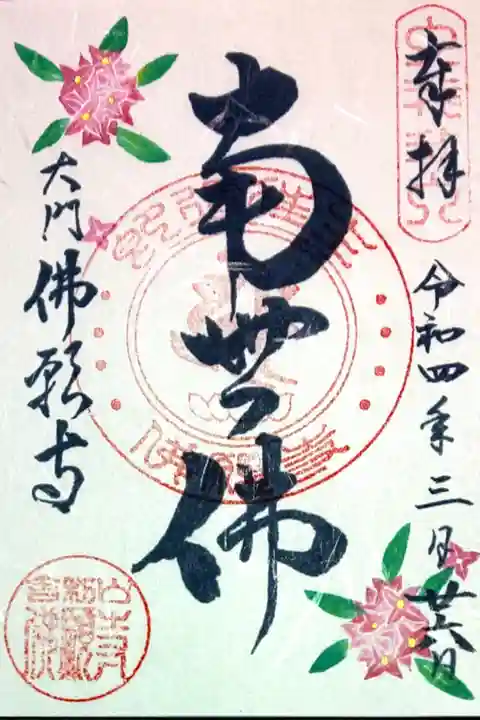 奉拝
令和四年三月廿六日
南無佛
大門佛願寺